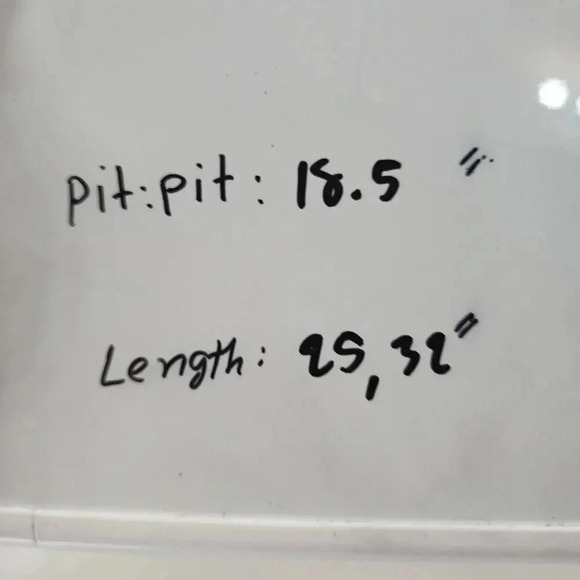 pit:pit: 18.5 "
Length: 25,32"